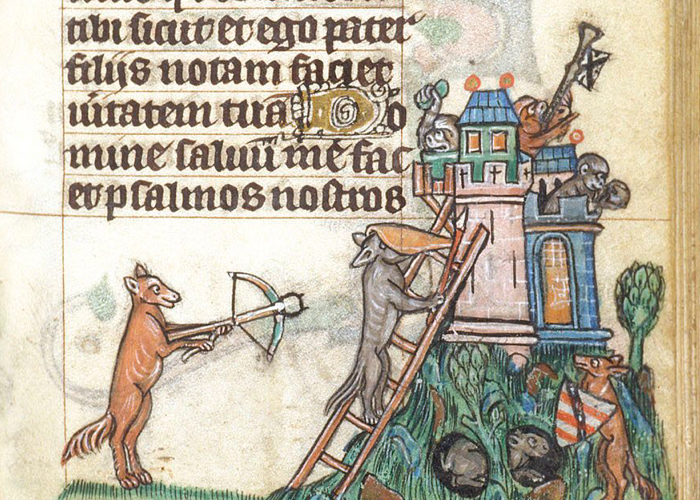 tibi sicut et ego pater
filijs notam faciet
uitatem tua o
mine saluū me fac
et psalmos nostros